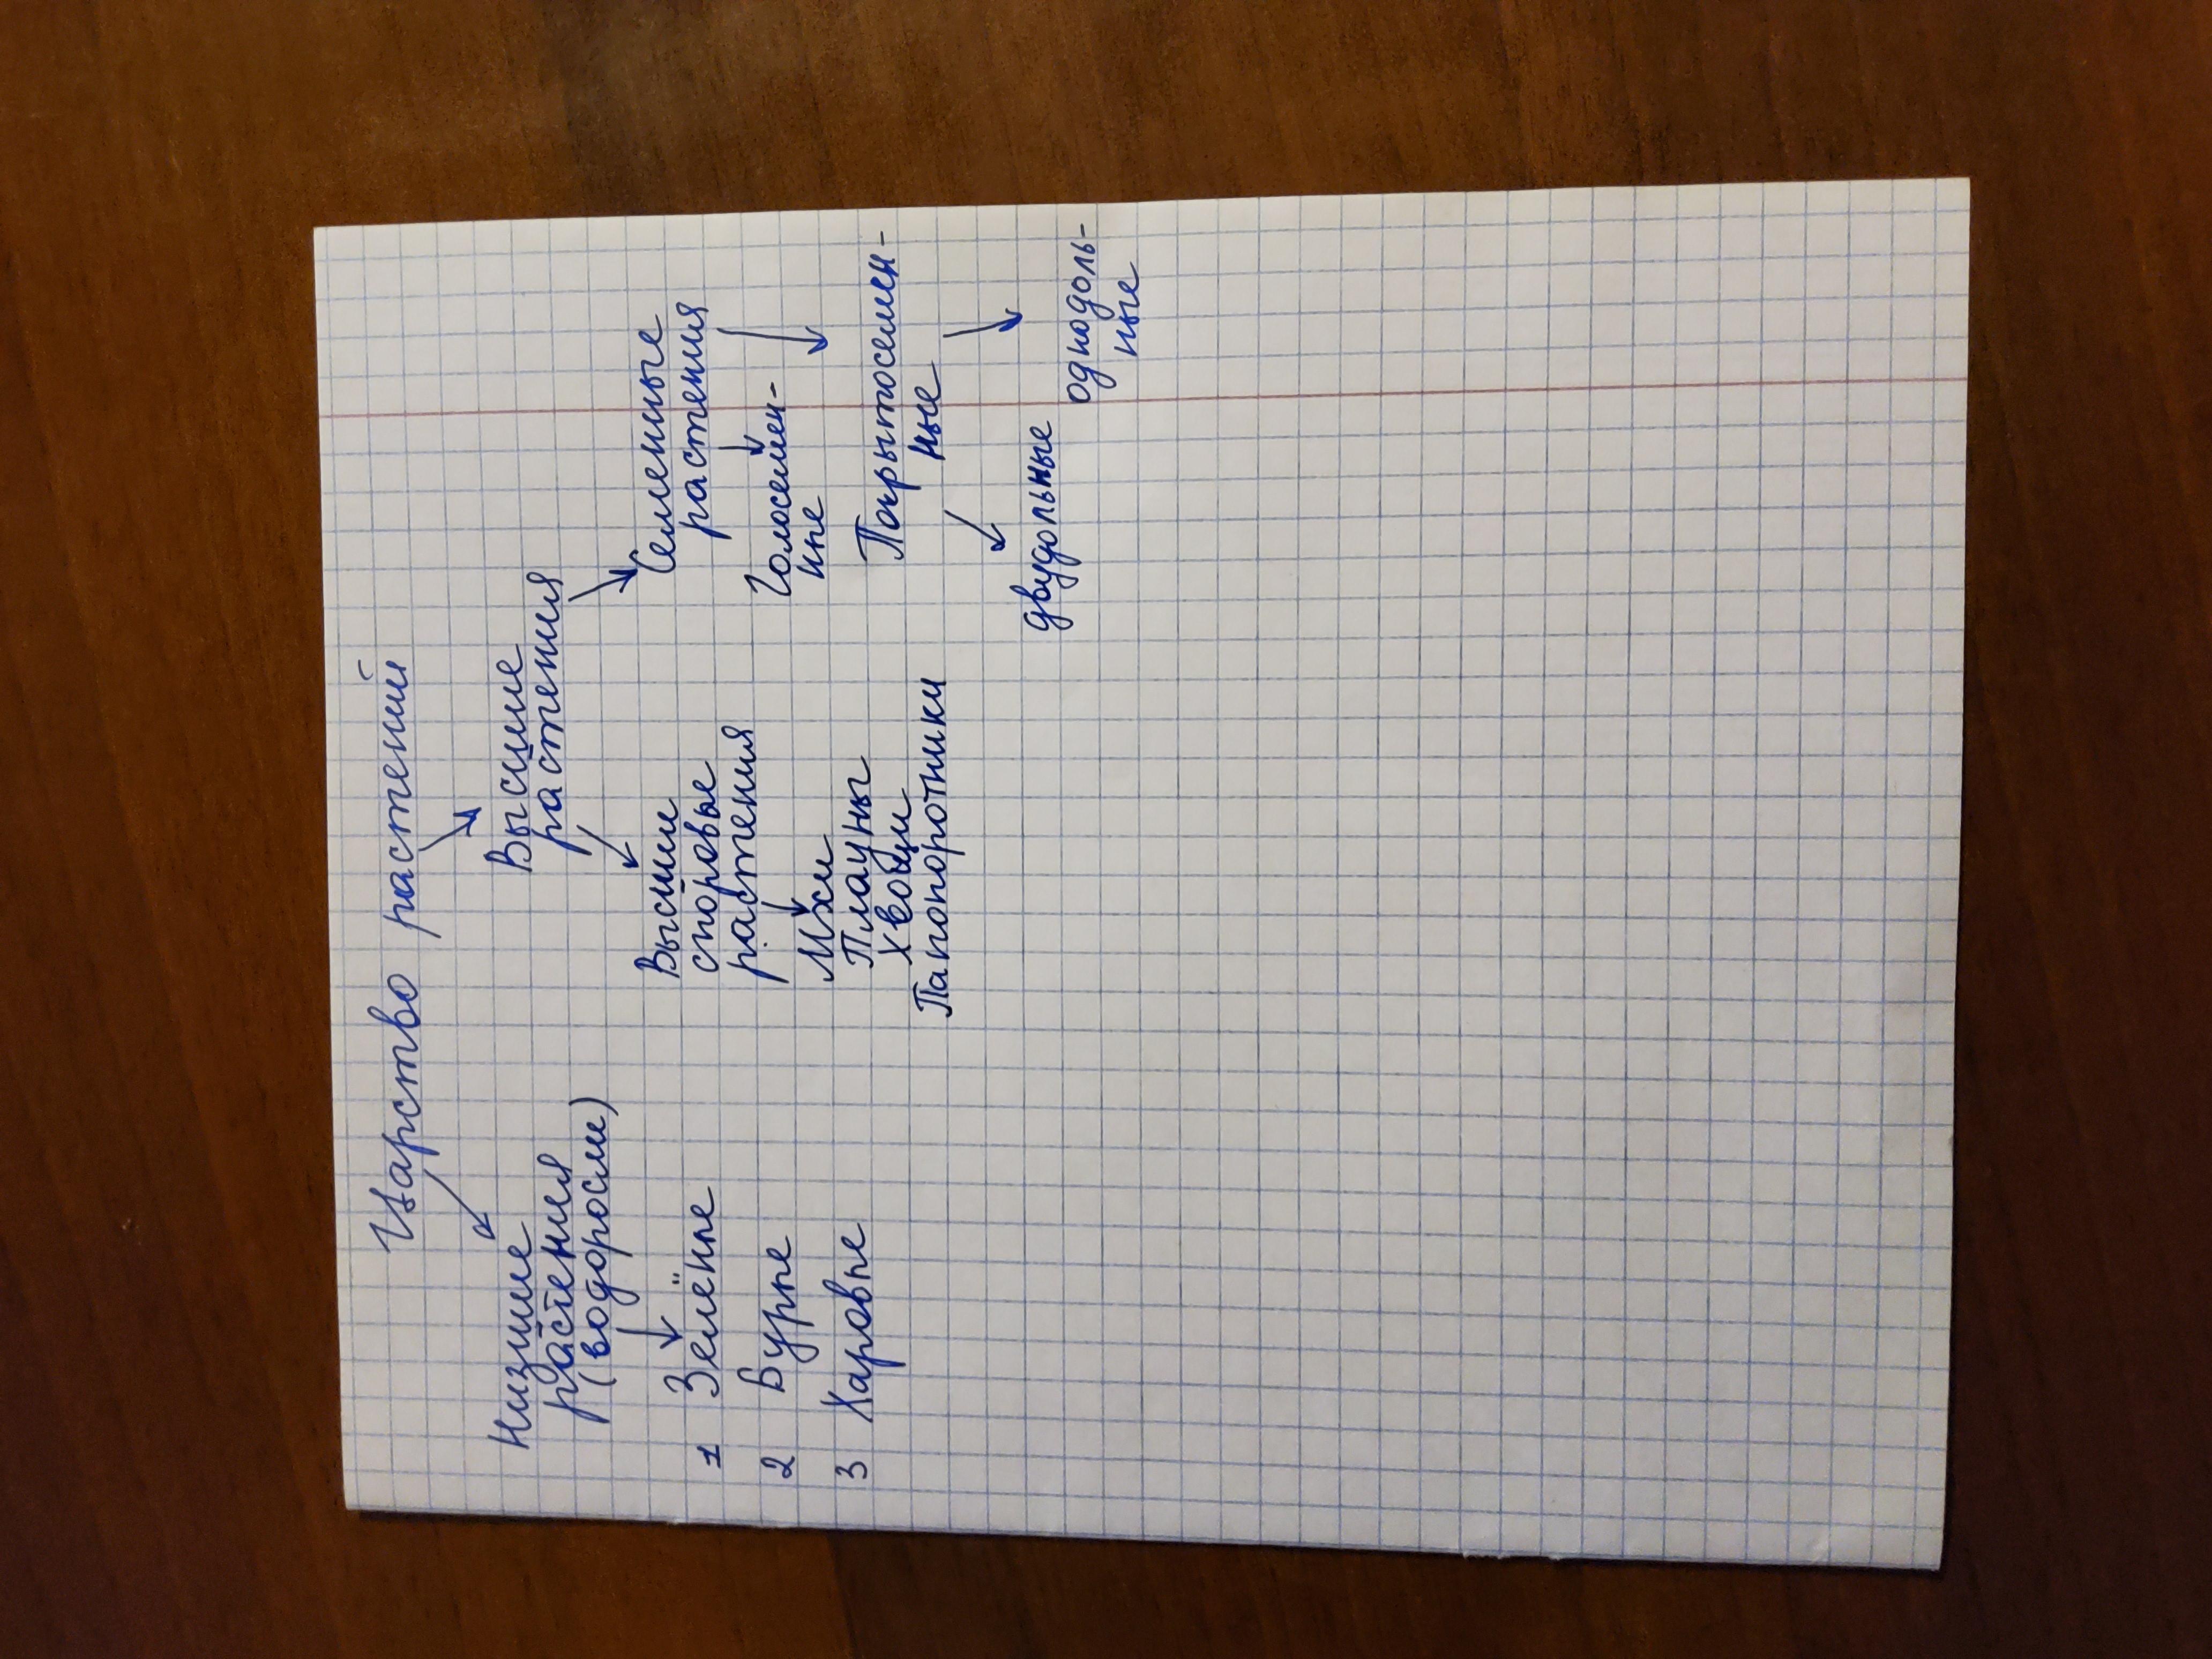 Царство растений
Низшие
растения
(водоросли)
1 Зелёные
2 Бурые
3 Харовые
Высшие
растения
Высшии
споровые
растения
Мхи
Плауны
Хвощи
Папопоротники
Семенные
растения
Голосемен-
ные
Покрытосемен-
ные
двудольные
однодоль-
ные